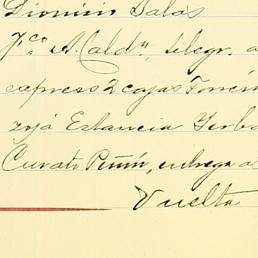 Dionisio Salas
Fco A. Caldn, telegr. a
express 2 cajas Torren
zojá Estancia Yerba
Curato Pimín, entrega a
Vuelta